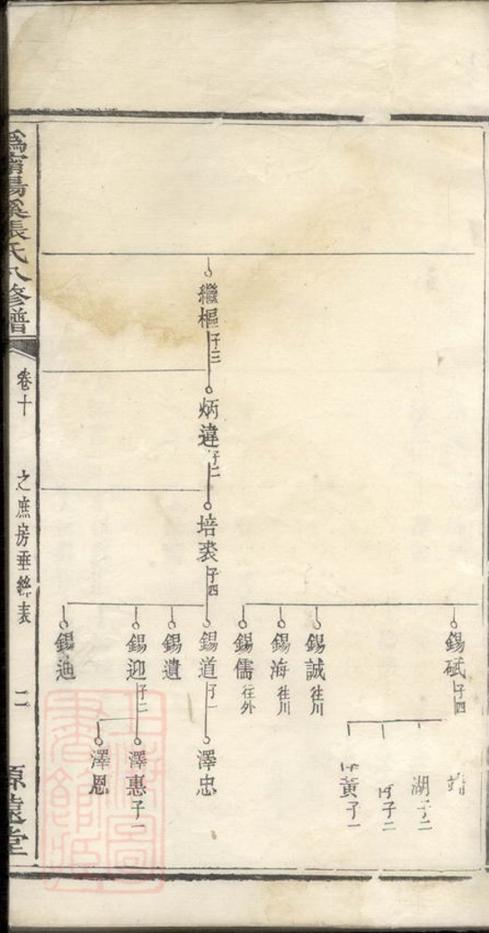 繼樞 子三
炳違 子二
培裘 子四
錫砥 子四
錫誠 往川
錫海 往川
錫儒 往外
錫道 子一
錫遺
錫迎 子二
錫迪
湖 子二
子二
黃 子一
澤忠
澤惠 子一
澤恩
湯溪張氏八修譜
卷十
之庶房垂絲表
二
源遠堂